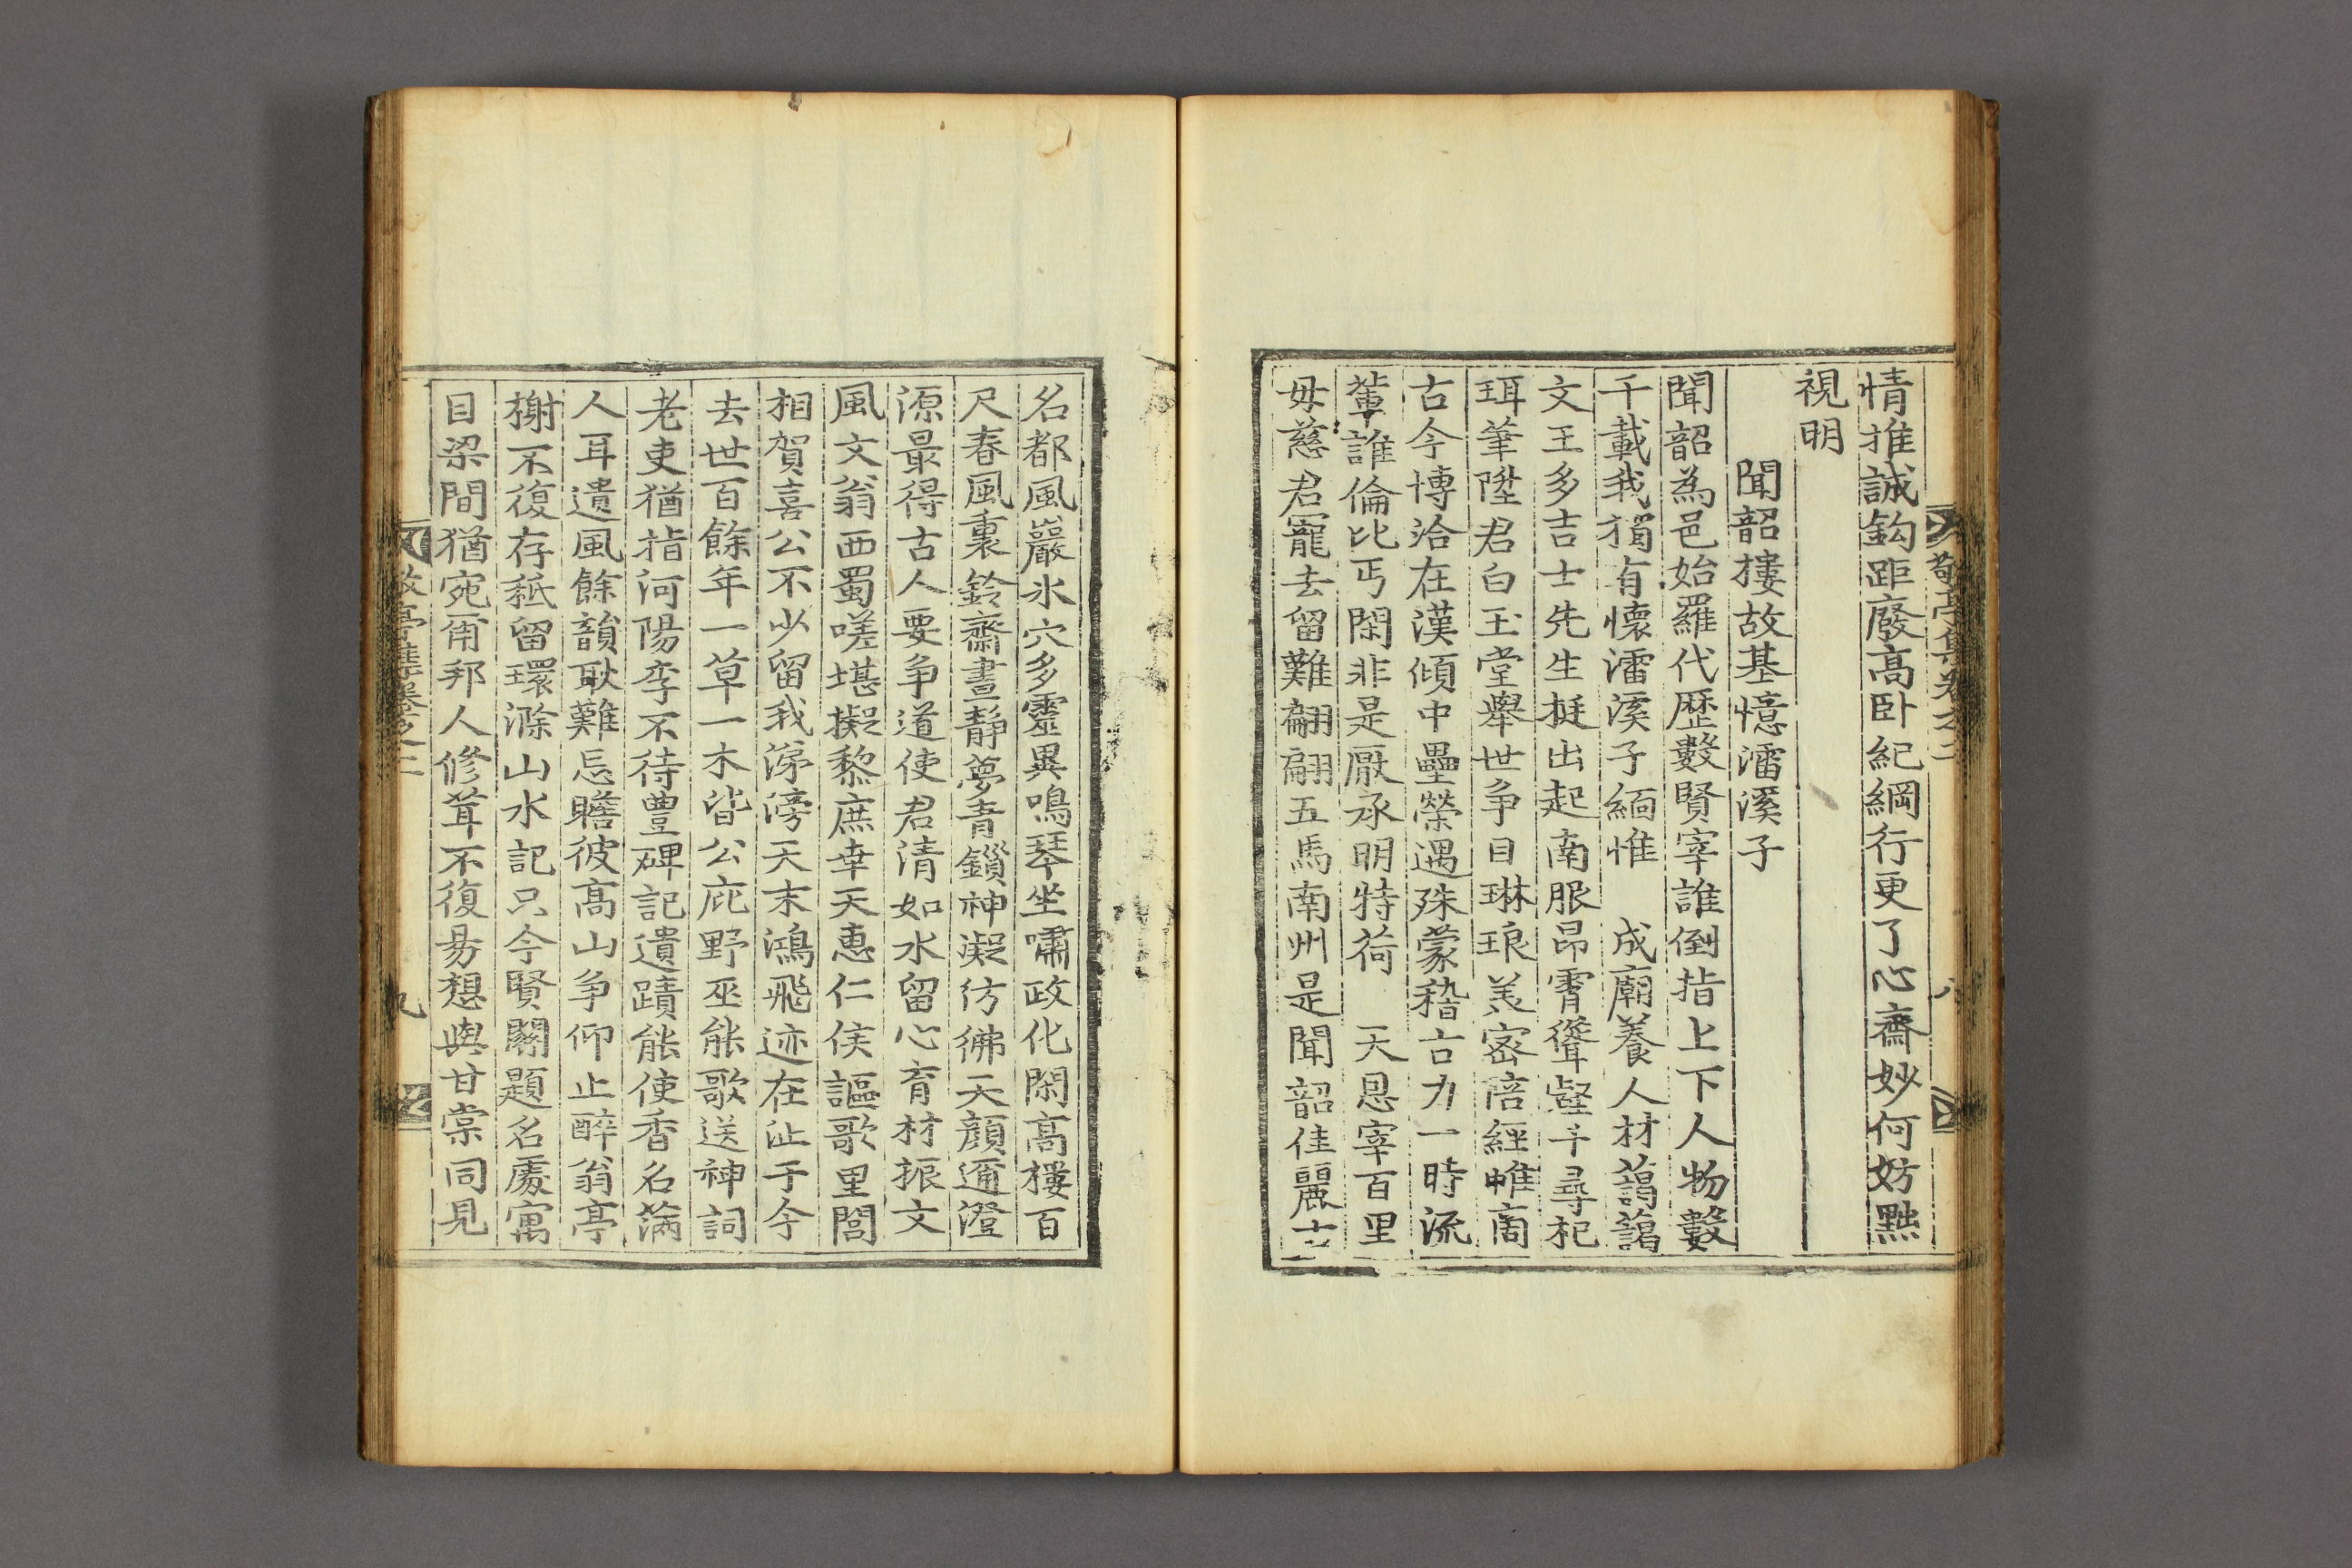 敬亭集卷之二
八
情推誠鈎距廢高卧紀綱行更了心齋妙何妨黜
視明
聞韶樓故基憶㵢溪子
聞韶為邑始羅代歷數賢宰誰倒指上下人物數
千載我獨有懷㵢溪子緬惟 成廟養人材藹藹
文王多吉士先生挺出起南服昂霄聳壑千尋杞
珥筆陞君白玉堂舉世争目琳琅美密陪經帷啇
古今博洽在漢傾中壘榮遇殊蒙稽古力一時流
輩誰倫比丐閑非是厭承明特荷 天恩宰百里
毋慈君寵去留難翩翩五馬南州是聞韶佳麗古
名都風巖氷穴多靈異鳴琴坐嘯政化閑高樓百
尺春風裏鈴齋晝靜夢青鎻神凝彷彿天顏邇澄
源最得古人要争道使君清如水留心育材振文
風文翁西蜀嗟堪擬黎庶幸天惠仁侯謳歌里閭
相賀喜公不少留我涕滂天末鴻飛迹在沚于今
去世百餘年一草一木皆公庇野巫能歌送神詞
老吏猶指河陽李不待豊碑記遺蹟能使香名滿
人耳遺風餘韻耿難忘瞻彼高山争仰止醉翁亭
榭不復存秪留環滁山水記只今賢閣題名處寓
目梁間猶宛甭邦人修葺不復昜想與甘棠同見
敬亭集卷之二
九